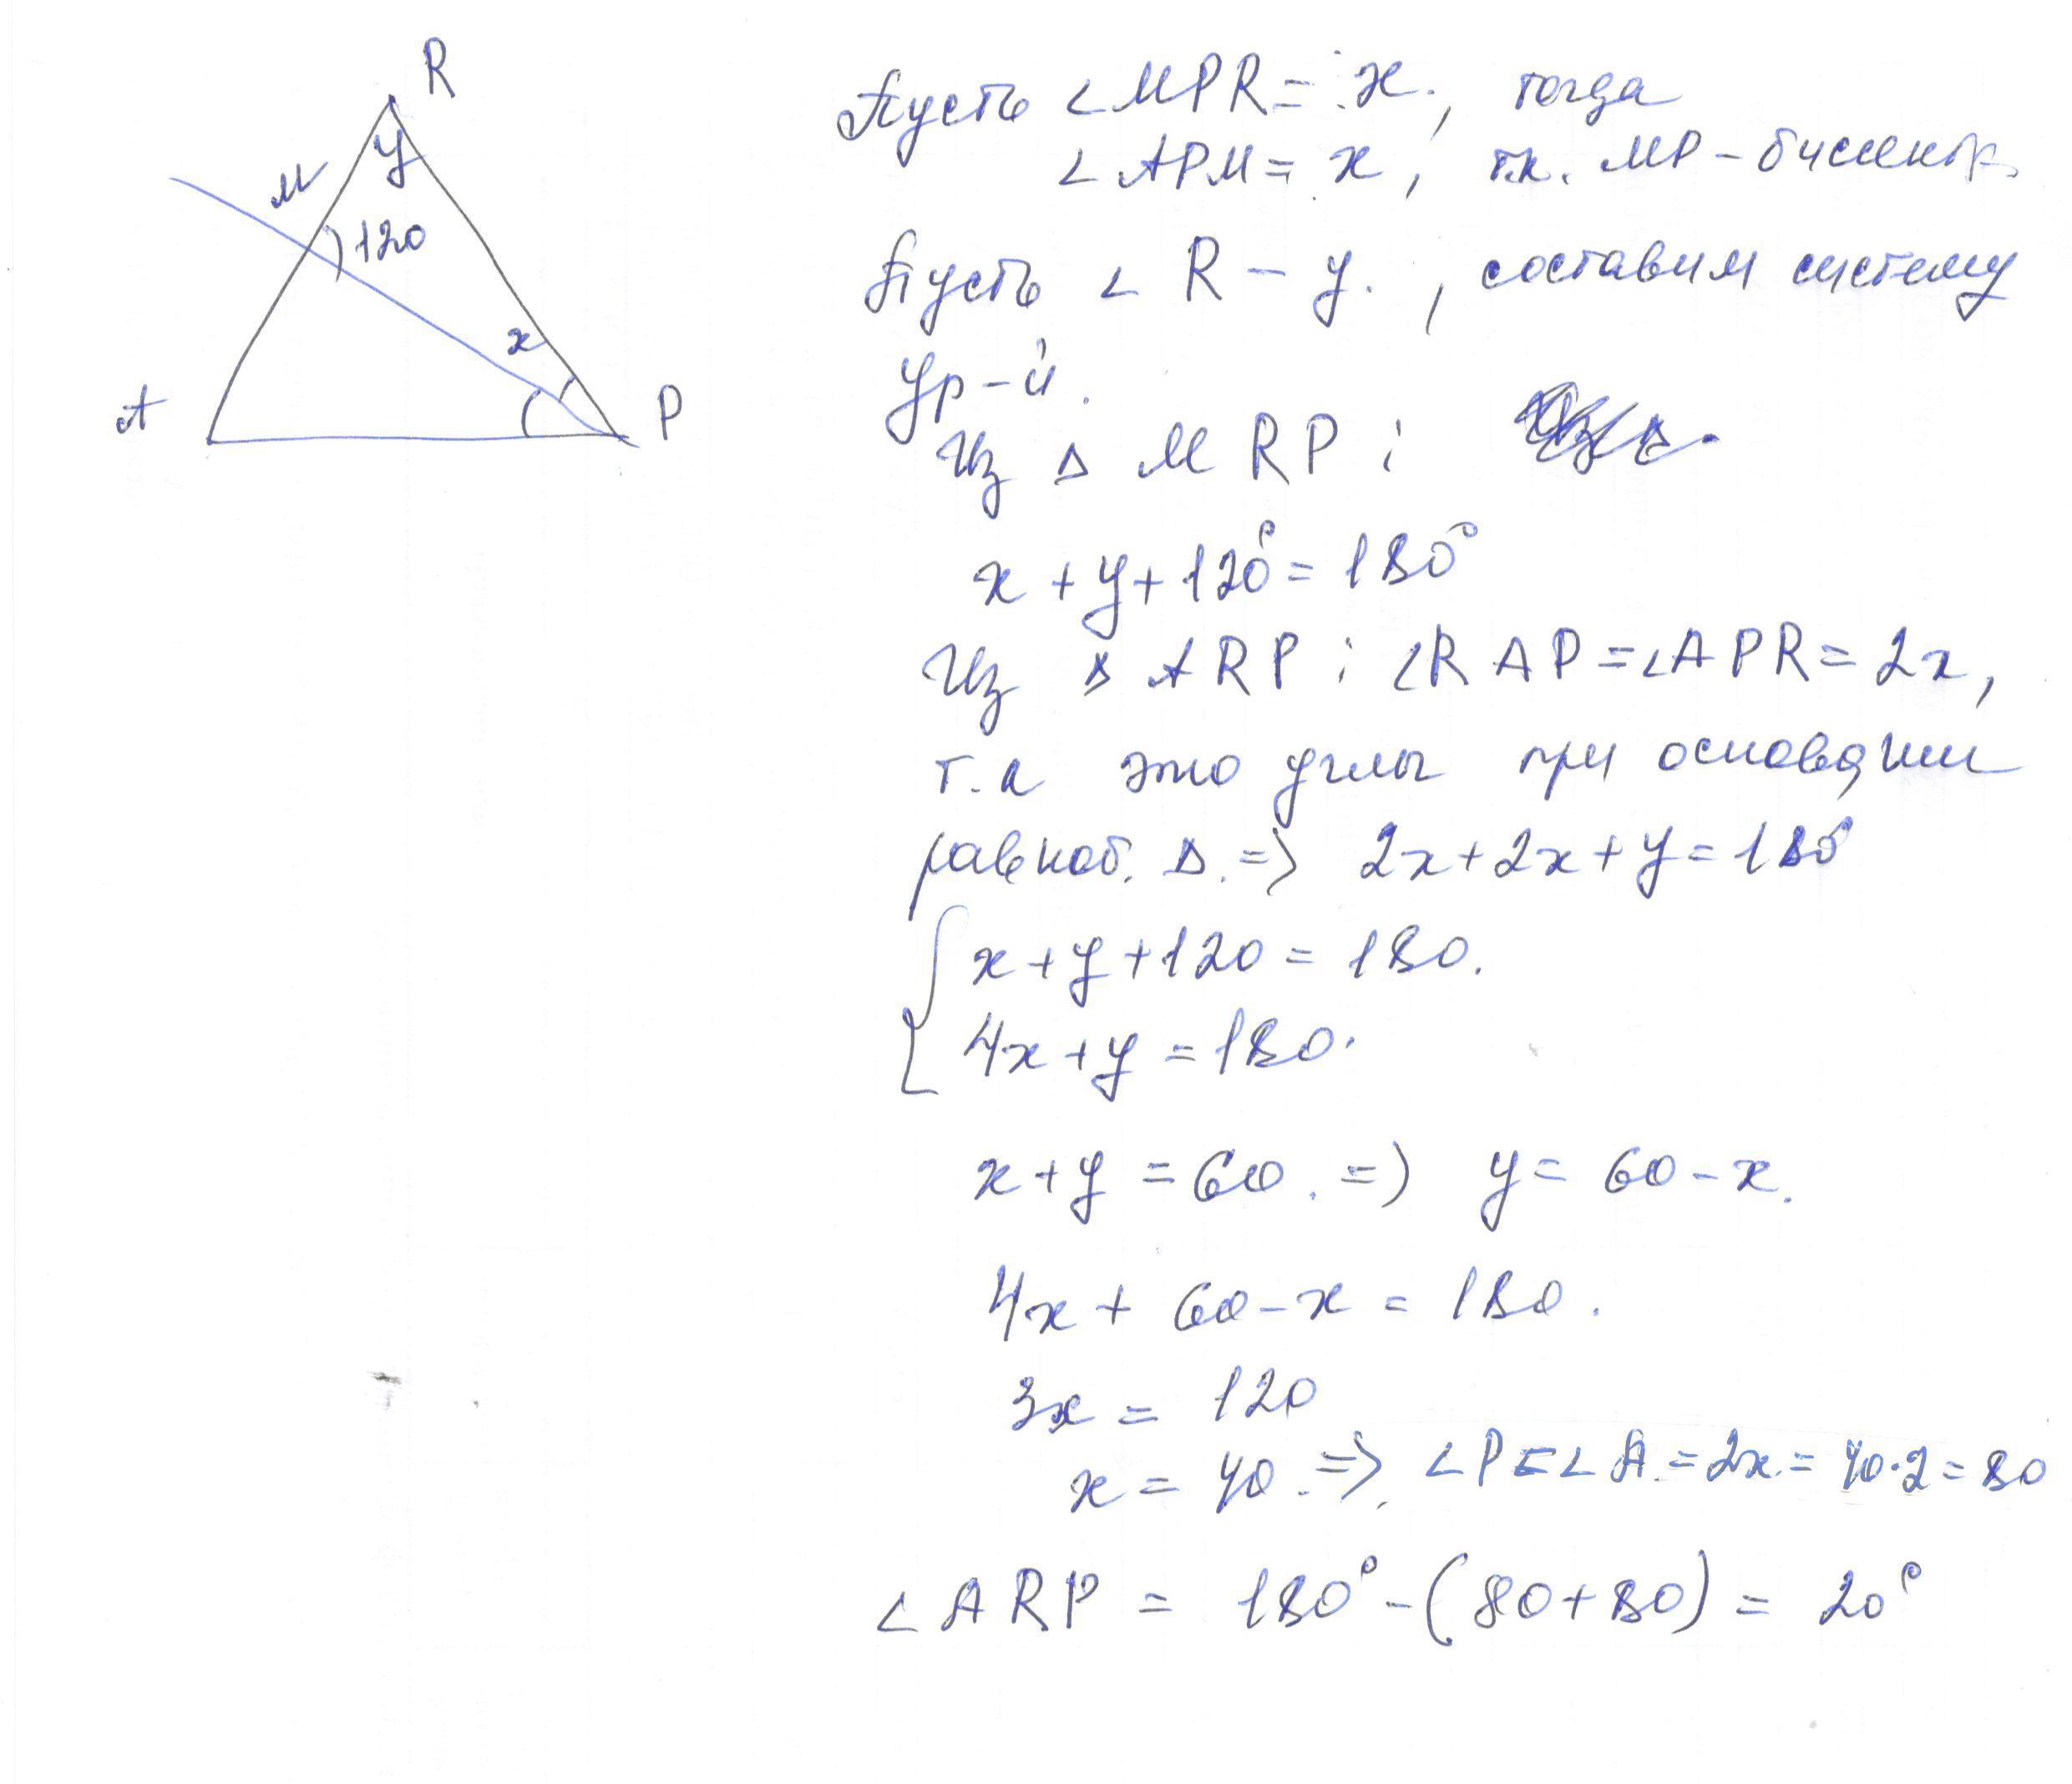 R
y
M
120
x
A
P
Пусть ∠MPR = x., тогда
∠APM = x, т.к. MP – биссектр.
Пусть ∠ R – y., составим систему
ур-й.
Из Δ MRP:
x + y + 120° = 180°
Из Δ ARP: ∠RAP = ∠APR = 2x,
т.к это углы при основании
равноб. Δ. => 2x + 2x + y = 180°
{ x + y + 120 = 180.
4x + y = 180.
x + y = 60. => y = 60 – x.
4x + 60 – x = 180.
3x = 120
x = 40. => ∠P = ∠A. = 2x. = 40·2 = 80
∠ARP = 180° – (80 + 80) = 20°